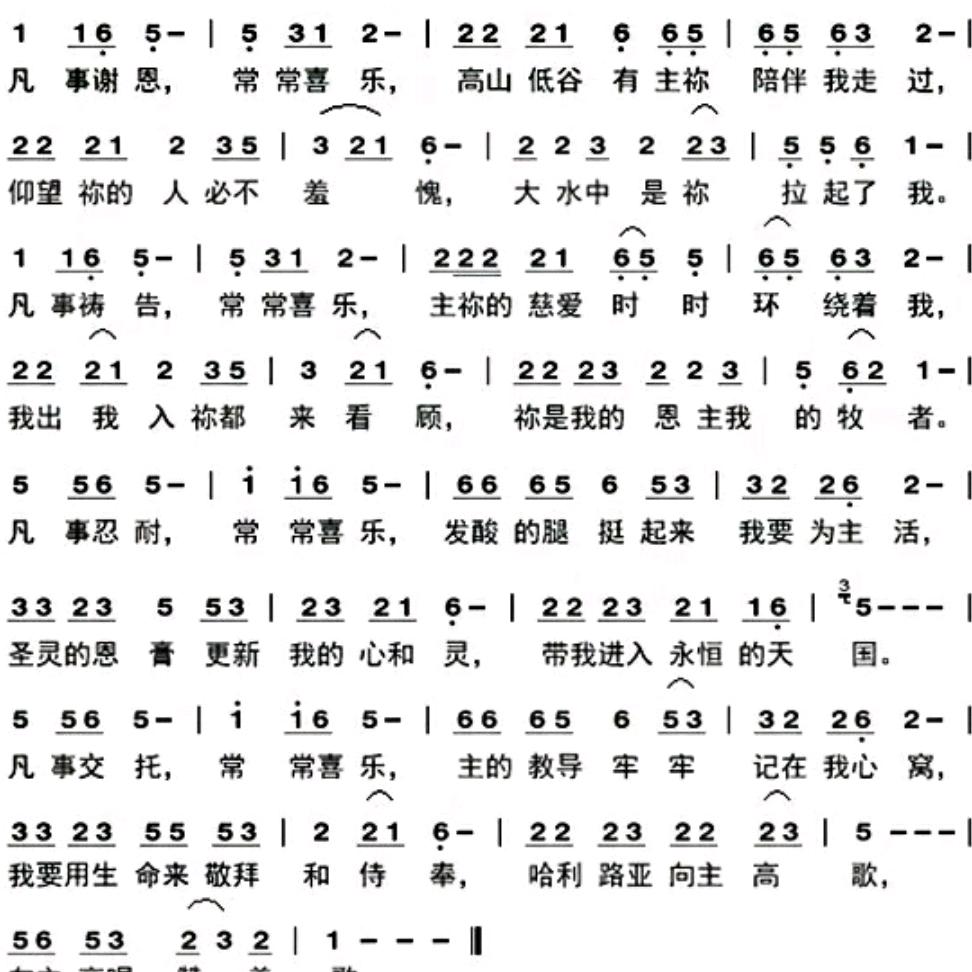 1 16 5- | 5 31 2- | 22 21 6 65 | 65 63 2- |
凡 事谢 恩， 常 常喜 乐， 高山 低谷 有 主祢 陪伴 我走 过，
22 21 2 35 | 3 21 6- | 2 2 3 2 23 | 5 5 6 1- |
仰望 祢的 人 必不 羞 愧， 大 水中 是 祢 拉 起了 我。
1 16 5- | 5 31 2- | 222 21 65 5 | 65 63 2- |
凡 事祷 告， 常 常喜 乐， 主祢的 慈爱 时 时 环 绕着 我，
22 21 2 35 | 3 21 6- | 22 23 2 2 3 | 5 62 1- |
我出 我 入 祢都 来 看 顾， 祢是我的 恩 主我 的 牧 者。
5 56 5- | 1 16 5- | 66 65 6 53 | 32 26 2- |
凡 事忍 耐， 常 常喜 乐， 发酸 的腿 挺 起来 我要 为主 活，
33 23 5 53 | 23 21 6- | 22 23 21 16 | 3 5--- |
圣灵的恩 膏 更新 我的 心和 灵， 带我进入 永恒 的天 国。
5 56 5- | 1 16 5- | 66 65 6 53 | 32 26 2- |
凡 事交 托， 常 常喜 乐， 主的 教导 牢 牢 记在 我心 窝，
33 23 55 53 | 2 21 6- | 22 23 22 23 | 5 --- |
我要用生 命来 敬拜 和 侍 奉， 哈利 路亚 向主 高 歌，
56 53 2 3 2 | 1 - - - ‖